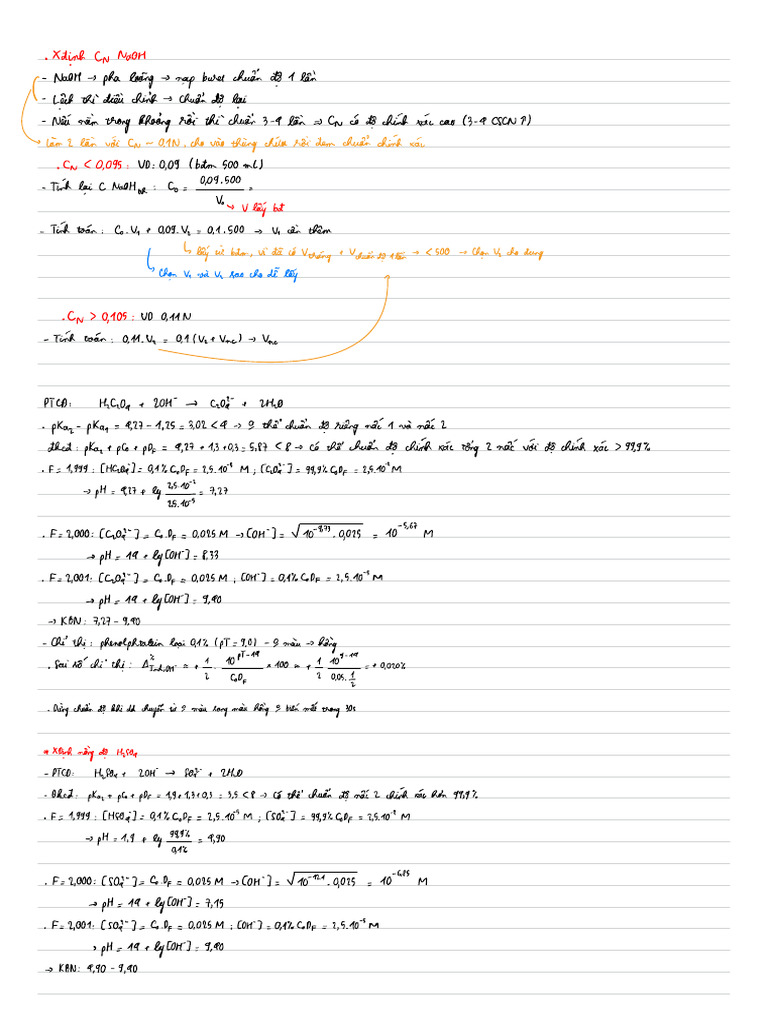 . Xđịnh C_N NaOH
- NaOH → pha loãng → nạp buret chuẩn độ 1 lần
- Lệch thì điều chỉnh → chuẩn độ lại
- Nếu nằm trong khoảng rồi thì chuẩn 3-4 lần ⇒ C_N có độ chính xác cao (3-4 CSCN ?)
Làm 2 lần với C_N ~ 0,1N, cho vào thùng chứa rồi đem chuẩn chính xác
. C_N < 0,095: VD: 0,09 (bđm 500 mL)
- Tính lại C NaOH : C₀ = 0,09.500 / V₀ =
↳ V lấy bđ
- Tính toán: C₀.V₁ + 0,09.V₂ = 0,1.500 → V₁ cần thêm
↳ lấy từ bđm, vì đã có V tráng + V chuẩn độ 1 lần → < 500 → chọn V₂ cho đúng
↳ Chọn V₁ và V₂ sao cho dễ lấy
. C_N > 0,105: VD 0,11N
- Tính toán: 0,11.V₂ = 0,1(V₂ + Vnc) → Vnc
PTCĐ: H₂C₂O₄ + 2OH⁻ → C₂O₄²⁻ + 2H₂O
. pKa₂ - pKa₁ = 4,27 - 1,25 = 3,02 < 4 → 0 thể chuẩn độ riêng nấc 1 và nấc 2
đkcđ: pKa₂ + pC₀ + pD_F = 4,27 + 1,3 + 0,3 = 5,87 < 8 → có thể chuẩn độ chính xác tổng 2 nấc với độ chính xác > 99,9%
. F = 1,999: [HC₂O₄⁻] = 0,1% C₀D_F = 2,5.10⁻⁵ M ; [C₂O₄²⁻] = 99,9% C₀D_F = 2,5.10⁻² M
→ pH = 4,27 + lg 2,5.10⁻² / 2,5.10⁻⁵ = 7,27
. F = 2,000: [C₂O₄²⁻] = C₀.D_F = 0,025 M → [OH⁻] = √(10^-9,73 . 0,025) = 10^-5,67 M
→ pH = 14 + lg[OH⁻] = 8,33
. F = 2,001: [C₂O₄²⁻] = C₀.D_F = 0,025 M ; [OH⁻] = 0,1% C₀D_F = 2,5.10⁻⁵ M
→ pH = 14 + lg[OH⁻] = 9,40
→ KBN: 7,27 - 9,40
- Chỉ thị: phenolphtalein loại 0,1% (pT = 9,0) - 0 màu → hồng
. Sai số chỉ thị: Δ% = + 1/2 . 10^(pT-14) / C₀D_F × 100 = + 1/2 . 10^(9-14) / 0,05.1/2 = + 0,020%
. Dừng chuẩn độ khi dd chuyển từ 0 màu sang màu hồng 0 biến mất trong 30s
* Xđịnh nồng độ H₂SO₄
- PTCĐ: H₂SO₄ + 2OH⁻ → SO₄²⁻ + 2H₂O
- Đkcđ: pKa₂ + pC₀ + pD_F = 1,9 + 1,3 + 0,3 = 3,5 < 8 → có thể chuẩn độ nấc 2 chính xác hơn 99,9%
. F = 1,999: [HSO₄⁻] = 0,1% C₀D_F = 2,5.10⁻⁵ M ; [SO₄²⁻] = 99,9% C₀D_F = 2,5.10⁻² M
→ pH = 1,9 + lg 99,9% / 0,1% = 4,90
. F = 2,000: [SO₄²⁻] = C₀.D_F = 0,025 M → [OH⁻] = √(10^-12,1 . 0,025) = 10^-6,85 M
→ pH = 14 + lg[OH⁻] = 7,15
. F = 2,001: [SO₄²⁻] = C₀.D_F = 0,025 M ; [OH⁻] = 0,1% C₀D_F = 2,5.10⁻⁵ M
→ pH = 14 + lg[OH⁻] = 9,40
→ KBN: 4,90 - 9,40